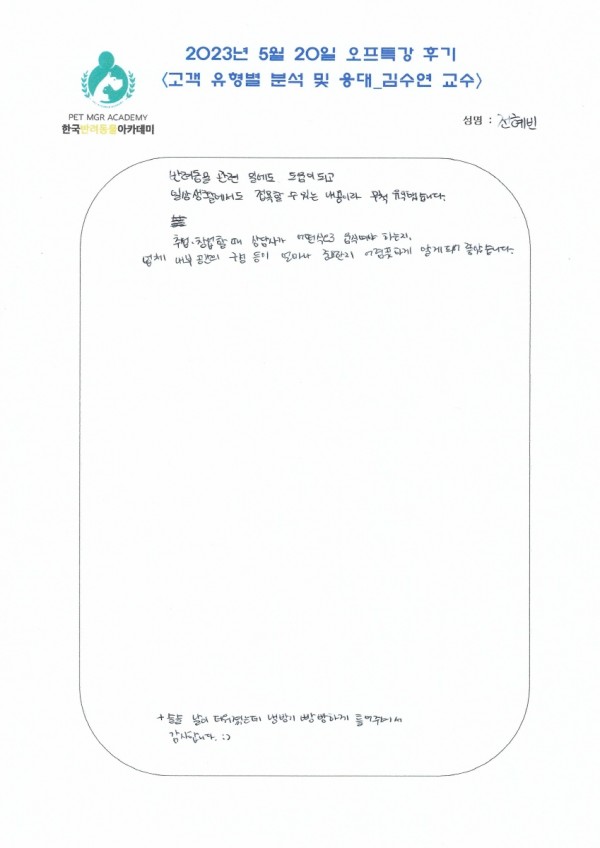 2023년 5월 20일 오프특강 후기
<고객 유형별 분석 및 응대_김수연 교수>
PET MGR ACADEMY
한국반려동물아카데미
성명 : 전혜빈
반려동물 관련 일에도 도움이 되고
일상생활에서도 접목할 수 있는 내용이라 무척 유익했습니다.
취업·창업할 때 상담사가 어떤식으로 응식해야 하는지,
업체 내부 공간의 구성 등이 얼마나 중요한지 어렴풋하게 알게되어 좋았습니다.
+ 오늘 날이 더워졌는데 냉방기 빵빵하게 틀어주셔서
감사합니다. :)